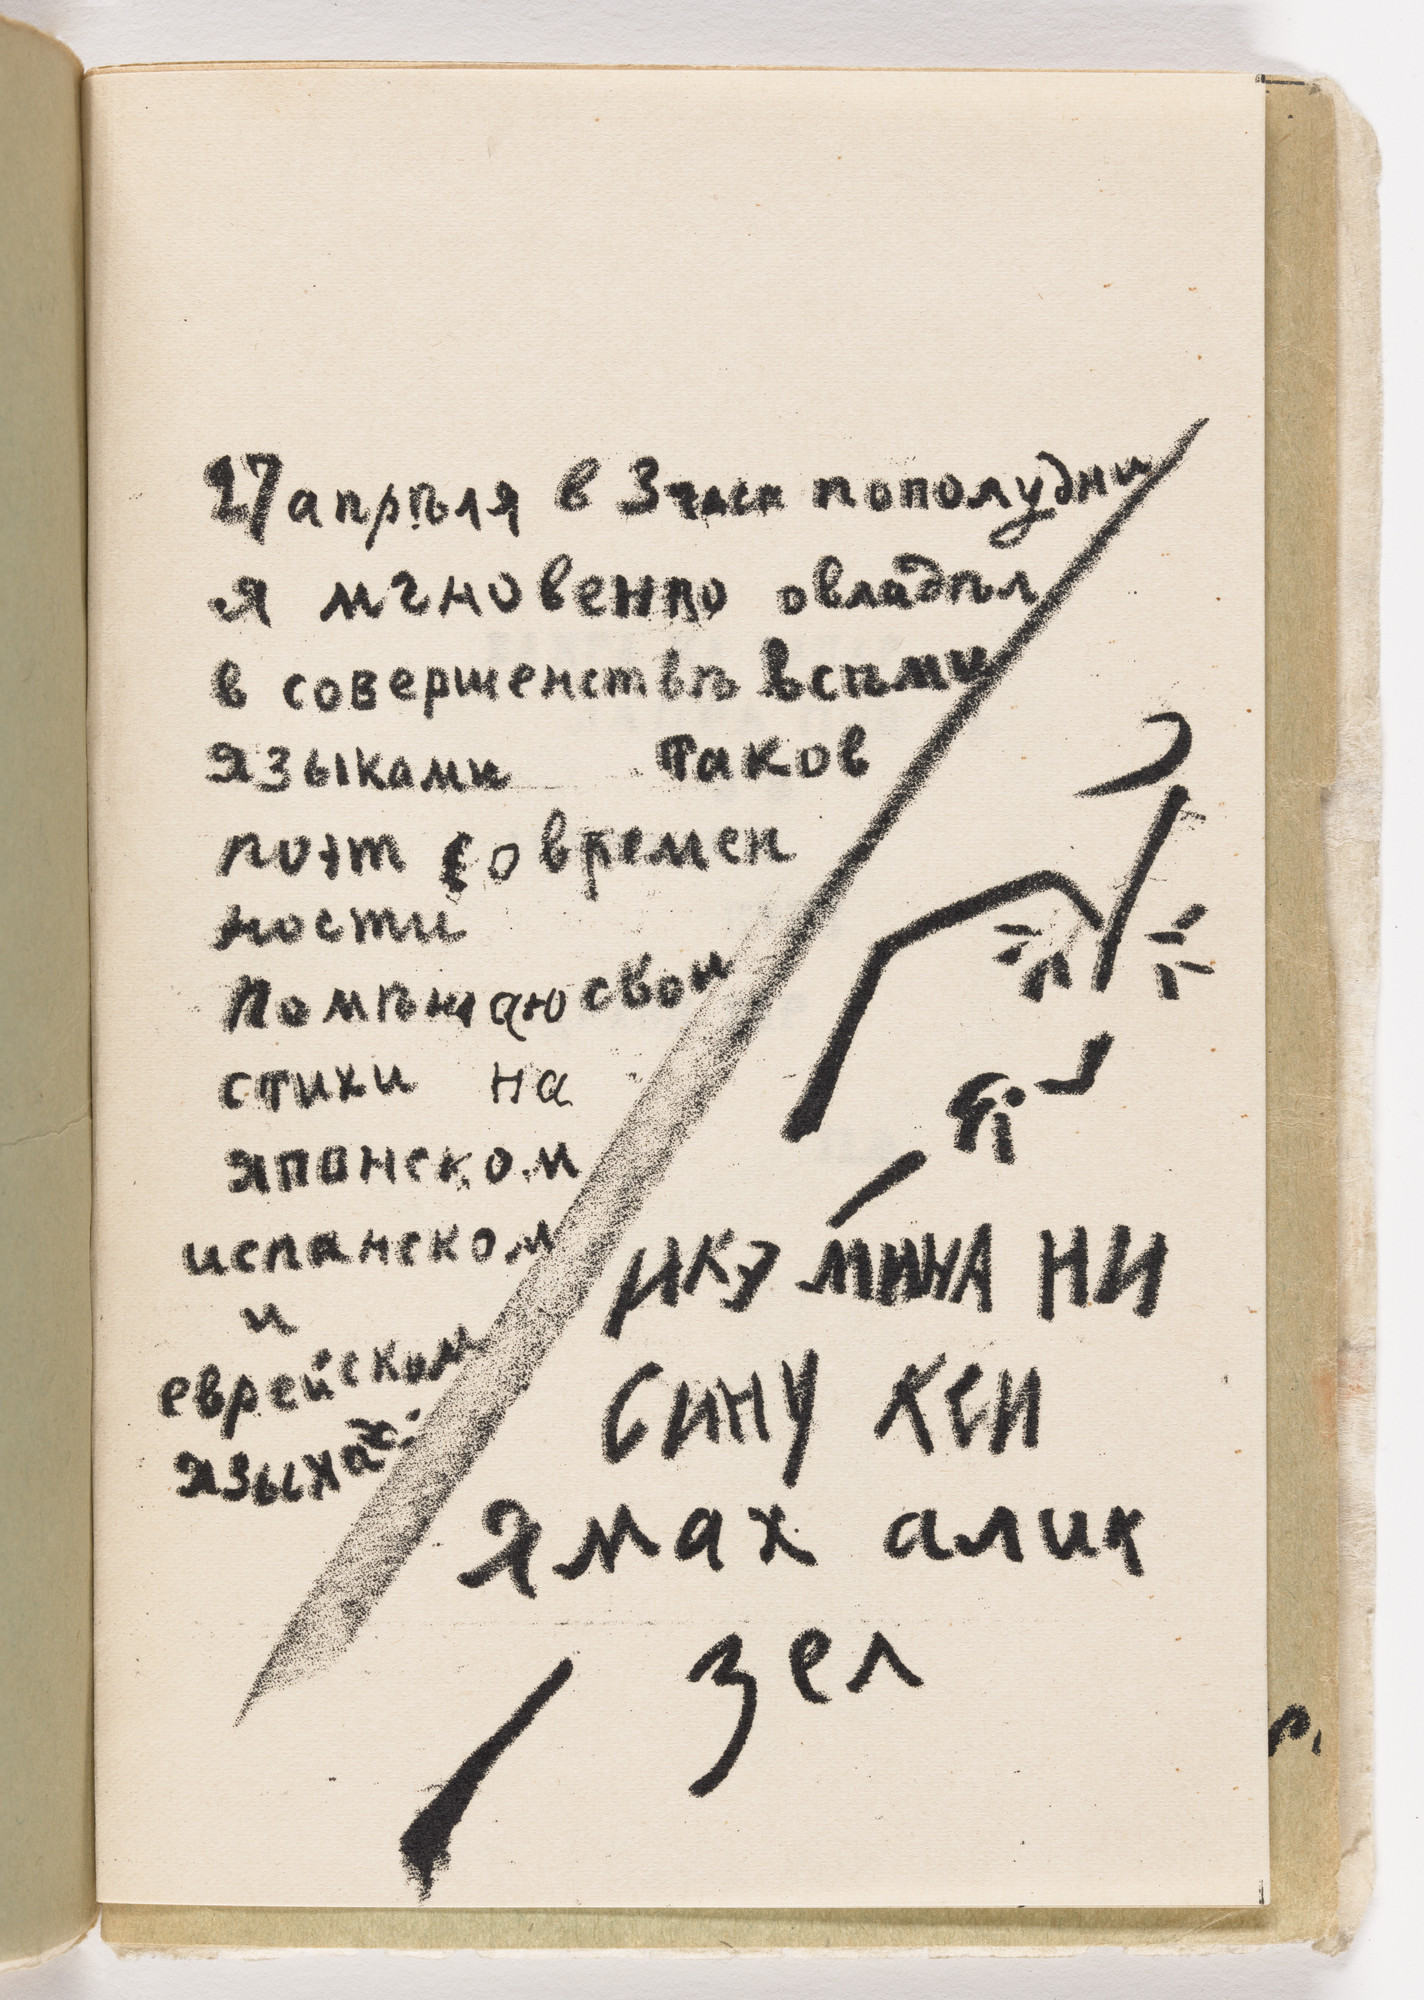 27 апрѣля в 3 часа пополудни
я мгновенно овладѣл
в совершенствѣ всѣми
языками таков
поэт современ
ности
Помѣщаю свои
стихи на
японском
испанском
и
еврейском
языках:
икэ мина ни
сину кси
ямах алик
зел